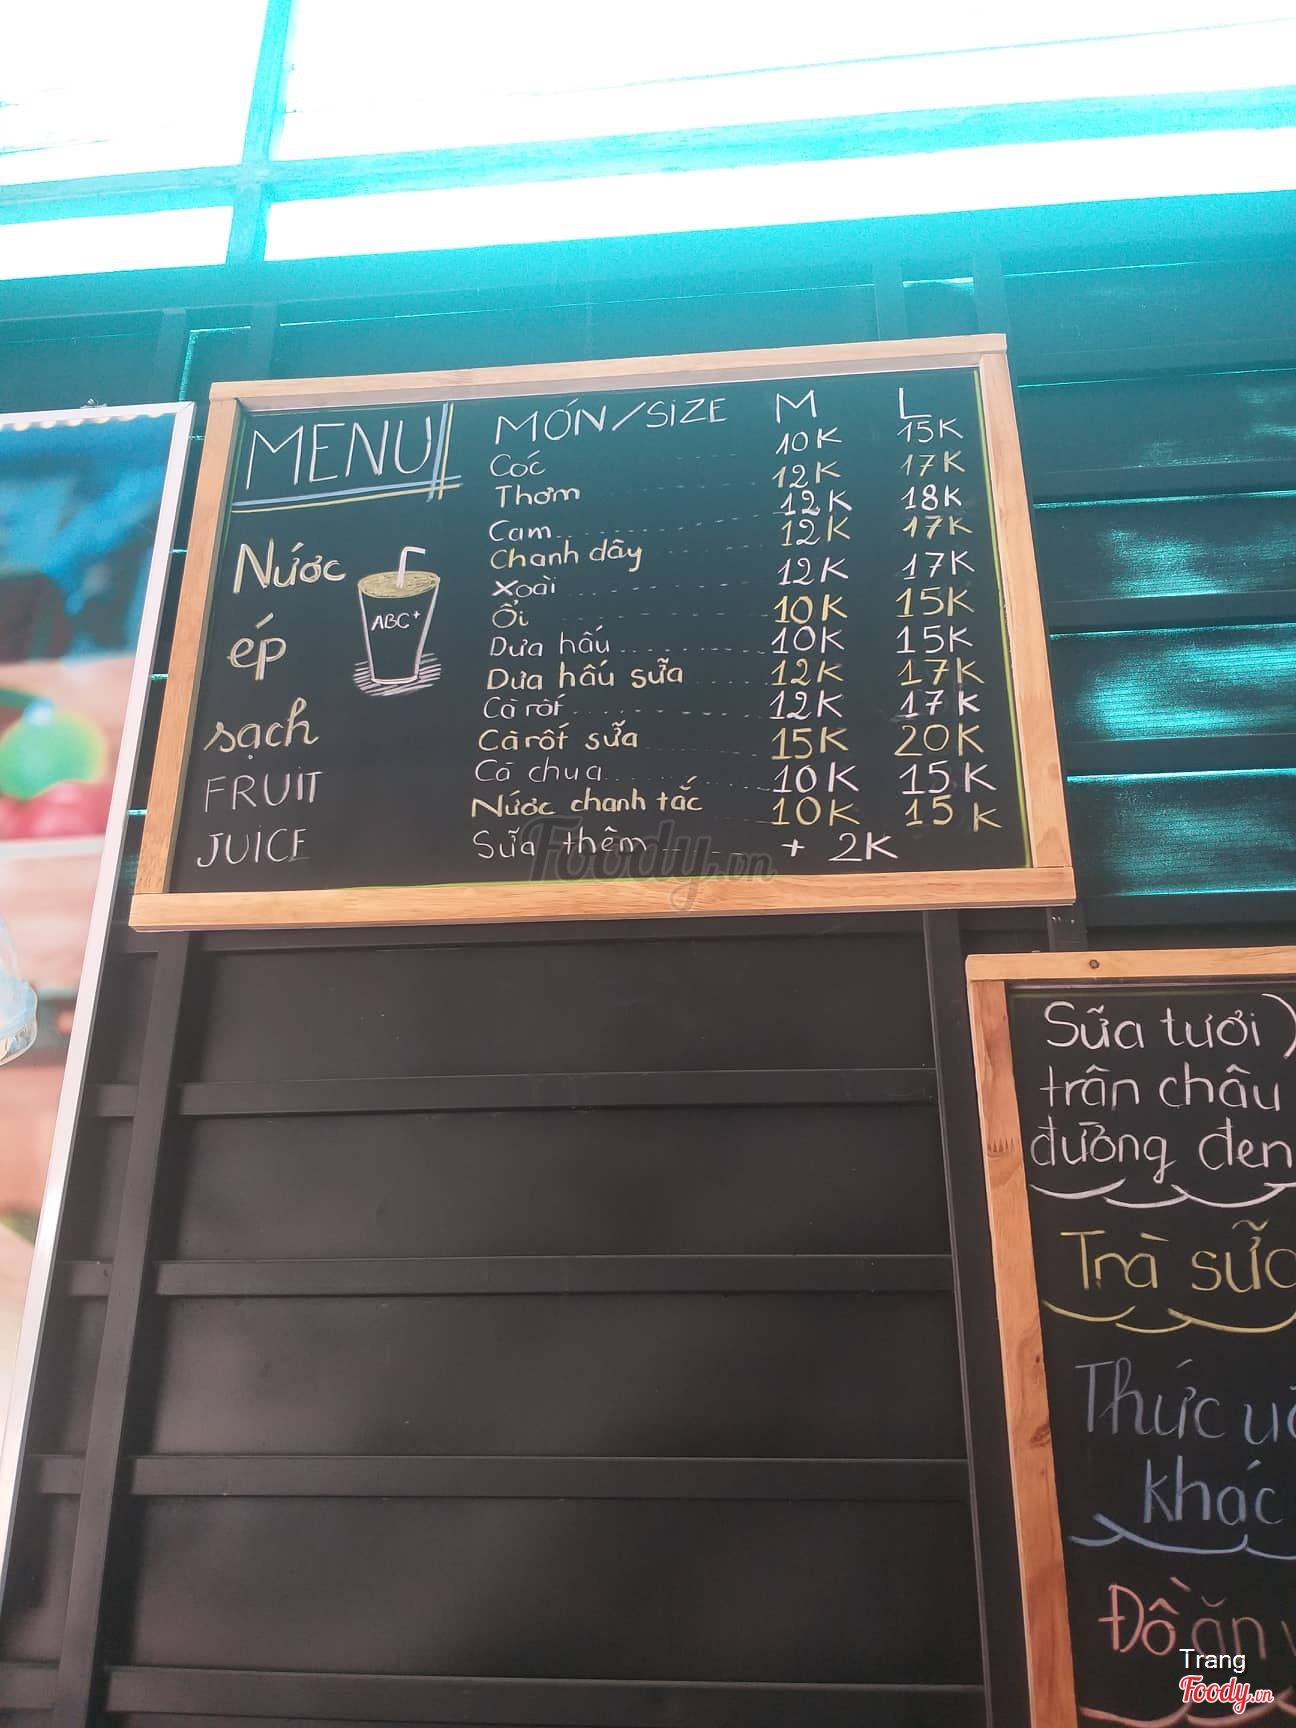 MENU
Nước
ép
sạch
FRUIT
JUICE
ABC+
MÓN/SIZE M L
Cóc 10K 15K
Thơm 12K 17K
Cam 12K 18K
Chanh dây 12K 17K
Xoài 12K 17K
Ổi 10K 15K
Dưa hấu 10K 15K
Dưa hấu sữa 12K 17K
Cà rốt 12K 17K
Cà rốt sữa 15K 20K
Cà chua 10K 15K
Nước chanh tắc 10K 15K
Sữa thêm + 2K
Foody.vn
Sữa tươi
trân châu
đường đen
Trà sữa
Thức
khác
Đồ ăn
Trang
Foody.vn